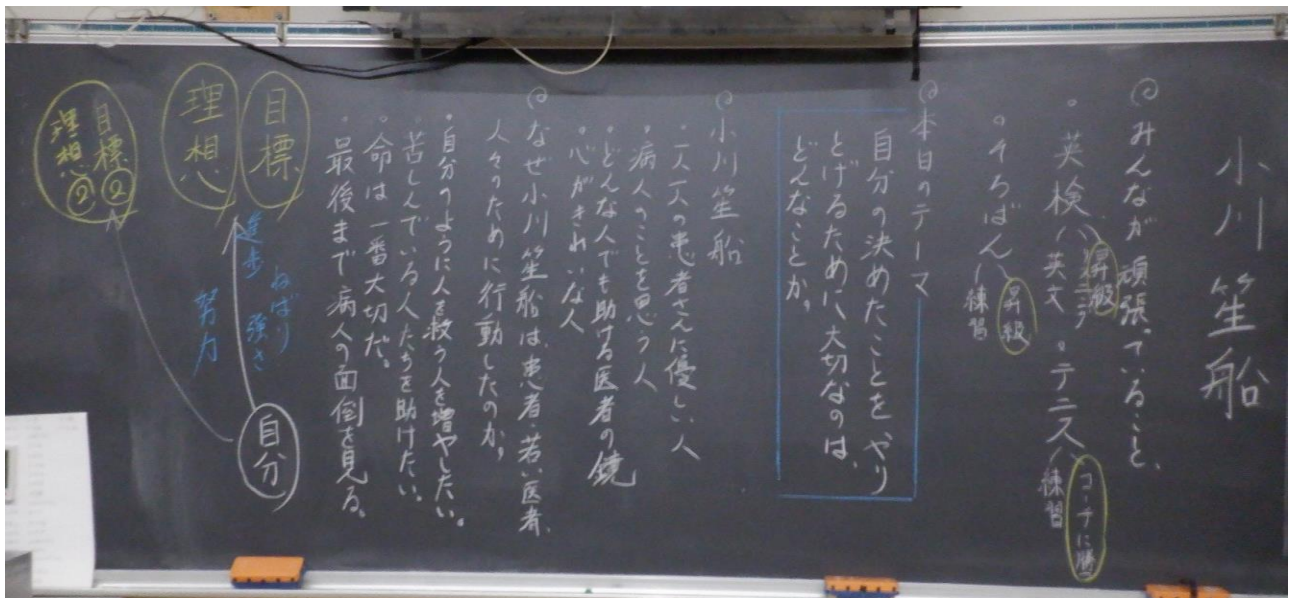 小川笙船
◎みんなが頑張っていること、
・英検
昇級
英文
・テニス
コーチに勝つ
練習
・そろばん
昇級
練習
◎本日のテーマ
自分の決めたことをやり
とげるために大切なのは、
どんなことか。
◎小川笙船
・一人一人の患者さんに優しい人
・病人のことを思う人
・どんな人でも助ける医者の鏡
・心がきれいな人
◎なぜ小川笙船は、患者・若い医者、
人々のために行動したのか。
・自分のように人を救う人を増やしたい。
・苦しんでいる人たちを助けたい。
・命は一番大切だ。
・最後まで病人の面倒を見る。
目標
理想
進歩
ねばり
強さ
努力
自分
目標②
理想②